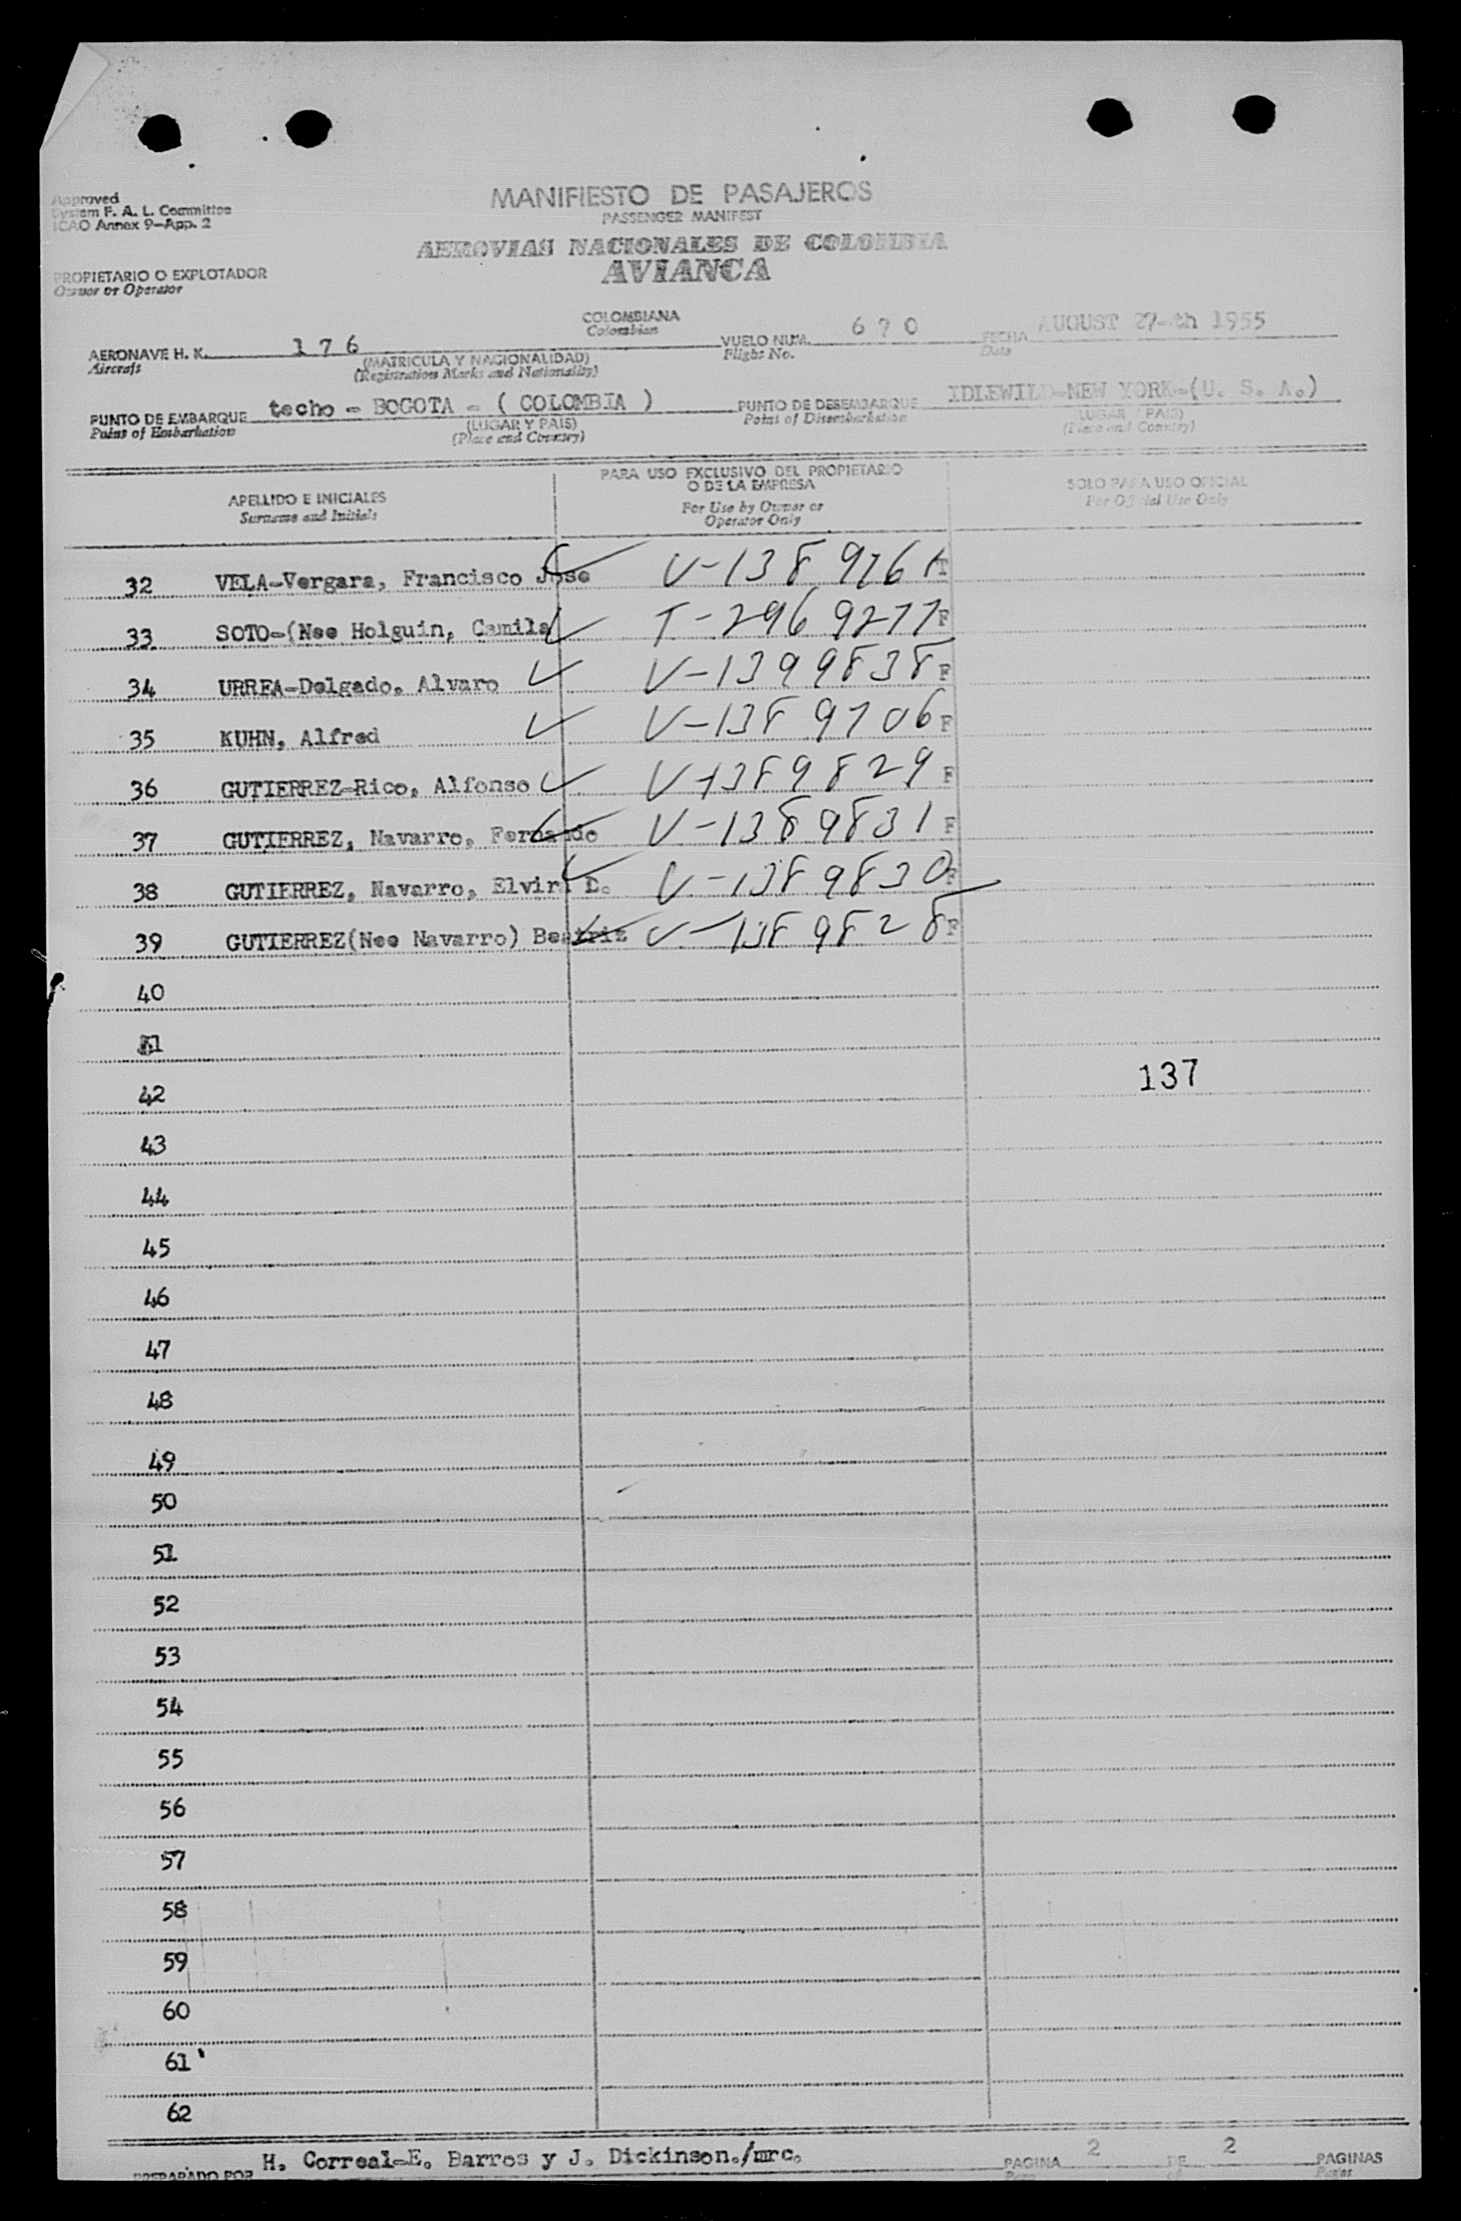 Approved
System F. A. L. Committee
ICAO Annex 9-App. 2
MANIFIESTO DE PASAJEROS
PASSENGER MANIFEST
AEROVIAS NACIONALES DE COLOMBIA
AVIANCA
PROPIETARIO O EXPLOTADOR
Owner or Operator
COLOMBIANA
Colombian
AERONAVE H. K. 176 VUELO NUM. 670 FECHA AUGUST 27-th 1955
Aircraft (MATRICULA Y NACIONALIDAD) Flight No. Date
(Registration Marks and Nationality)
PUNTO DE EMBARQUE techo - BOGOTA - ( COLOMBIA ) PUNTO DE DESEMBARQUE IDLEWILD-NEW YORK-(U. S. A.)
Point of Embarkation (LUGAR Y PAIS) Point of Disembarkation (LUGAR Y PAIS)
(Place and Country) (Place and Country)
APELLIDO E INICIALES PARA USO EXCLUSIVO DEL PROPIETARIO O DE LA EMPRESA SOLO PARA USO OFICIAL
Surname and Initials For Use by Owner or Operator Only For Official Use Only
32 VELA-Vergara, Francisco Jose T
33 SOTO-(Nee Holguin, Camila T-2969277 F
34 URREA-Delgado, Alvaro V-1399838 F
35 KUHN, Alfred V-1389706 F
36 GUTIERREZ-Rico, Alfonso V-1389829 F
37 GUTIERREZ, Navarro, Fernando V-1389831 F
38 GUTIERREZ, Navarro, Elvira D. V-1389830 F
39 GUTIERREZ(Nee Navarro) Beatriz V-1389828 F
40
41
42 137
43
44
45
46
47
48
49
50
51
52
53
54
55
56
57
58
59
60
61
62
PREPARADO POR H. Correal-E. Barros y J. Dickinson./mrc. PAGINA 2 DE 2 PAGINAS
Page of Pages